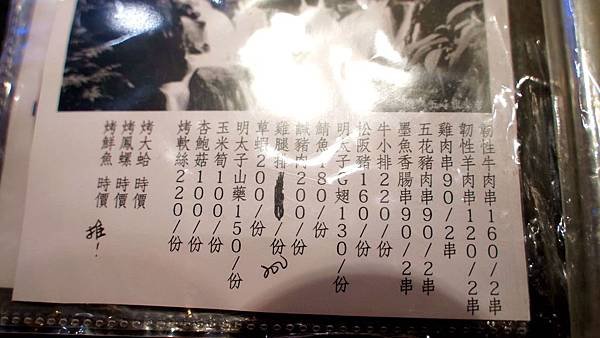 韌性牛肉串160/2串
韌性羊肉串120/2串
雞肉串90/2串
五花豬肉串90/2串
墨魚香腸串90/2串
牛小排220/份
松阪豬160/份
明太子G翅130/份
鯖魚180/份
鹹豬肉200/份
雞腿排/份
草蝦200/份
明太子山藥150/份
玉米筍100/份
杏鮑菇100/份
烤軟絲220/份
烤大蛤 時價
烤鳳螺 時價
烤鮮魚 時價
推!